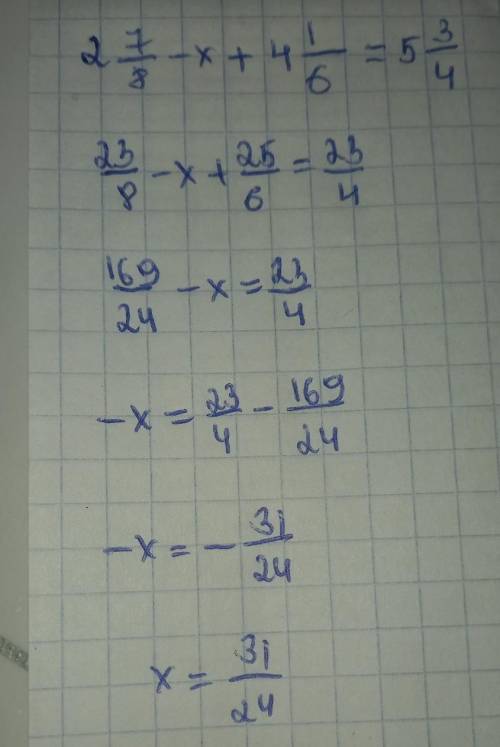 2 7/8 - x + 4 1/6 = 5 3/4
23/8 - x + 25/6 = 23/4
169/24 - x = 23/4
-x = 23/4 - 169/24
-x = - 31/24
x = 31/24